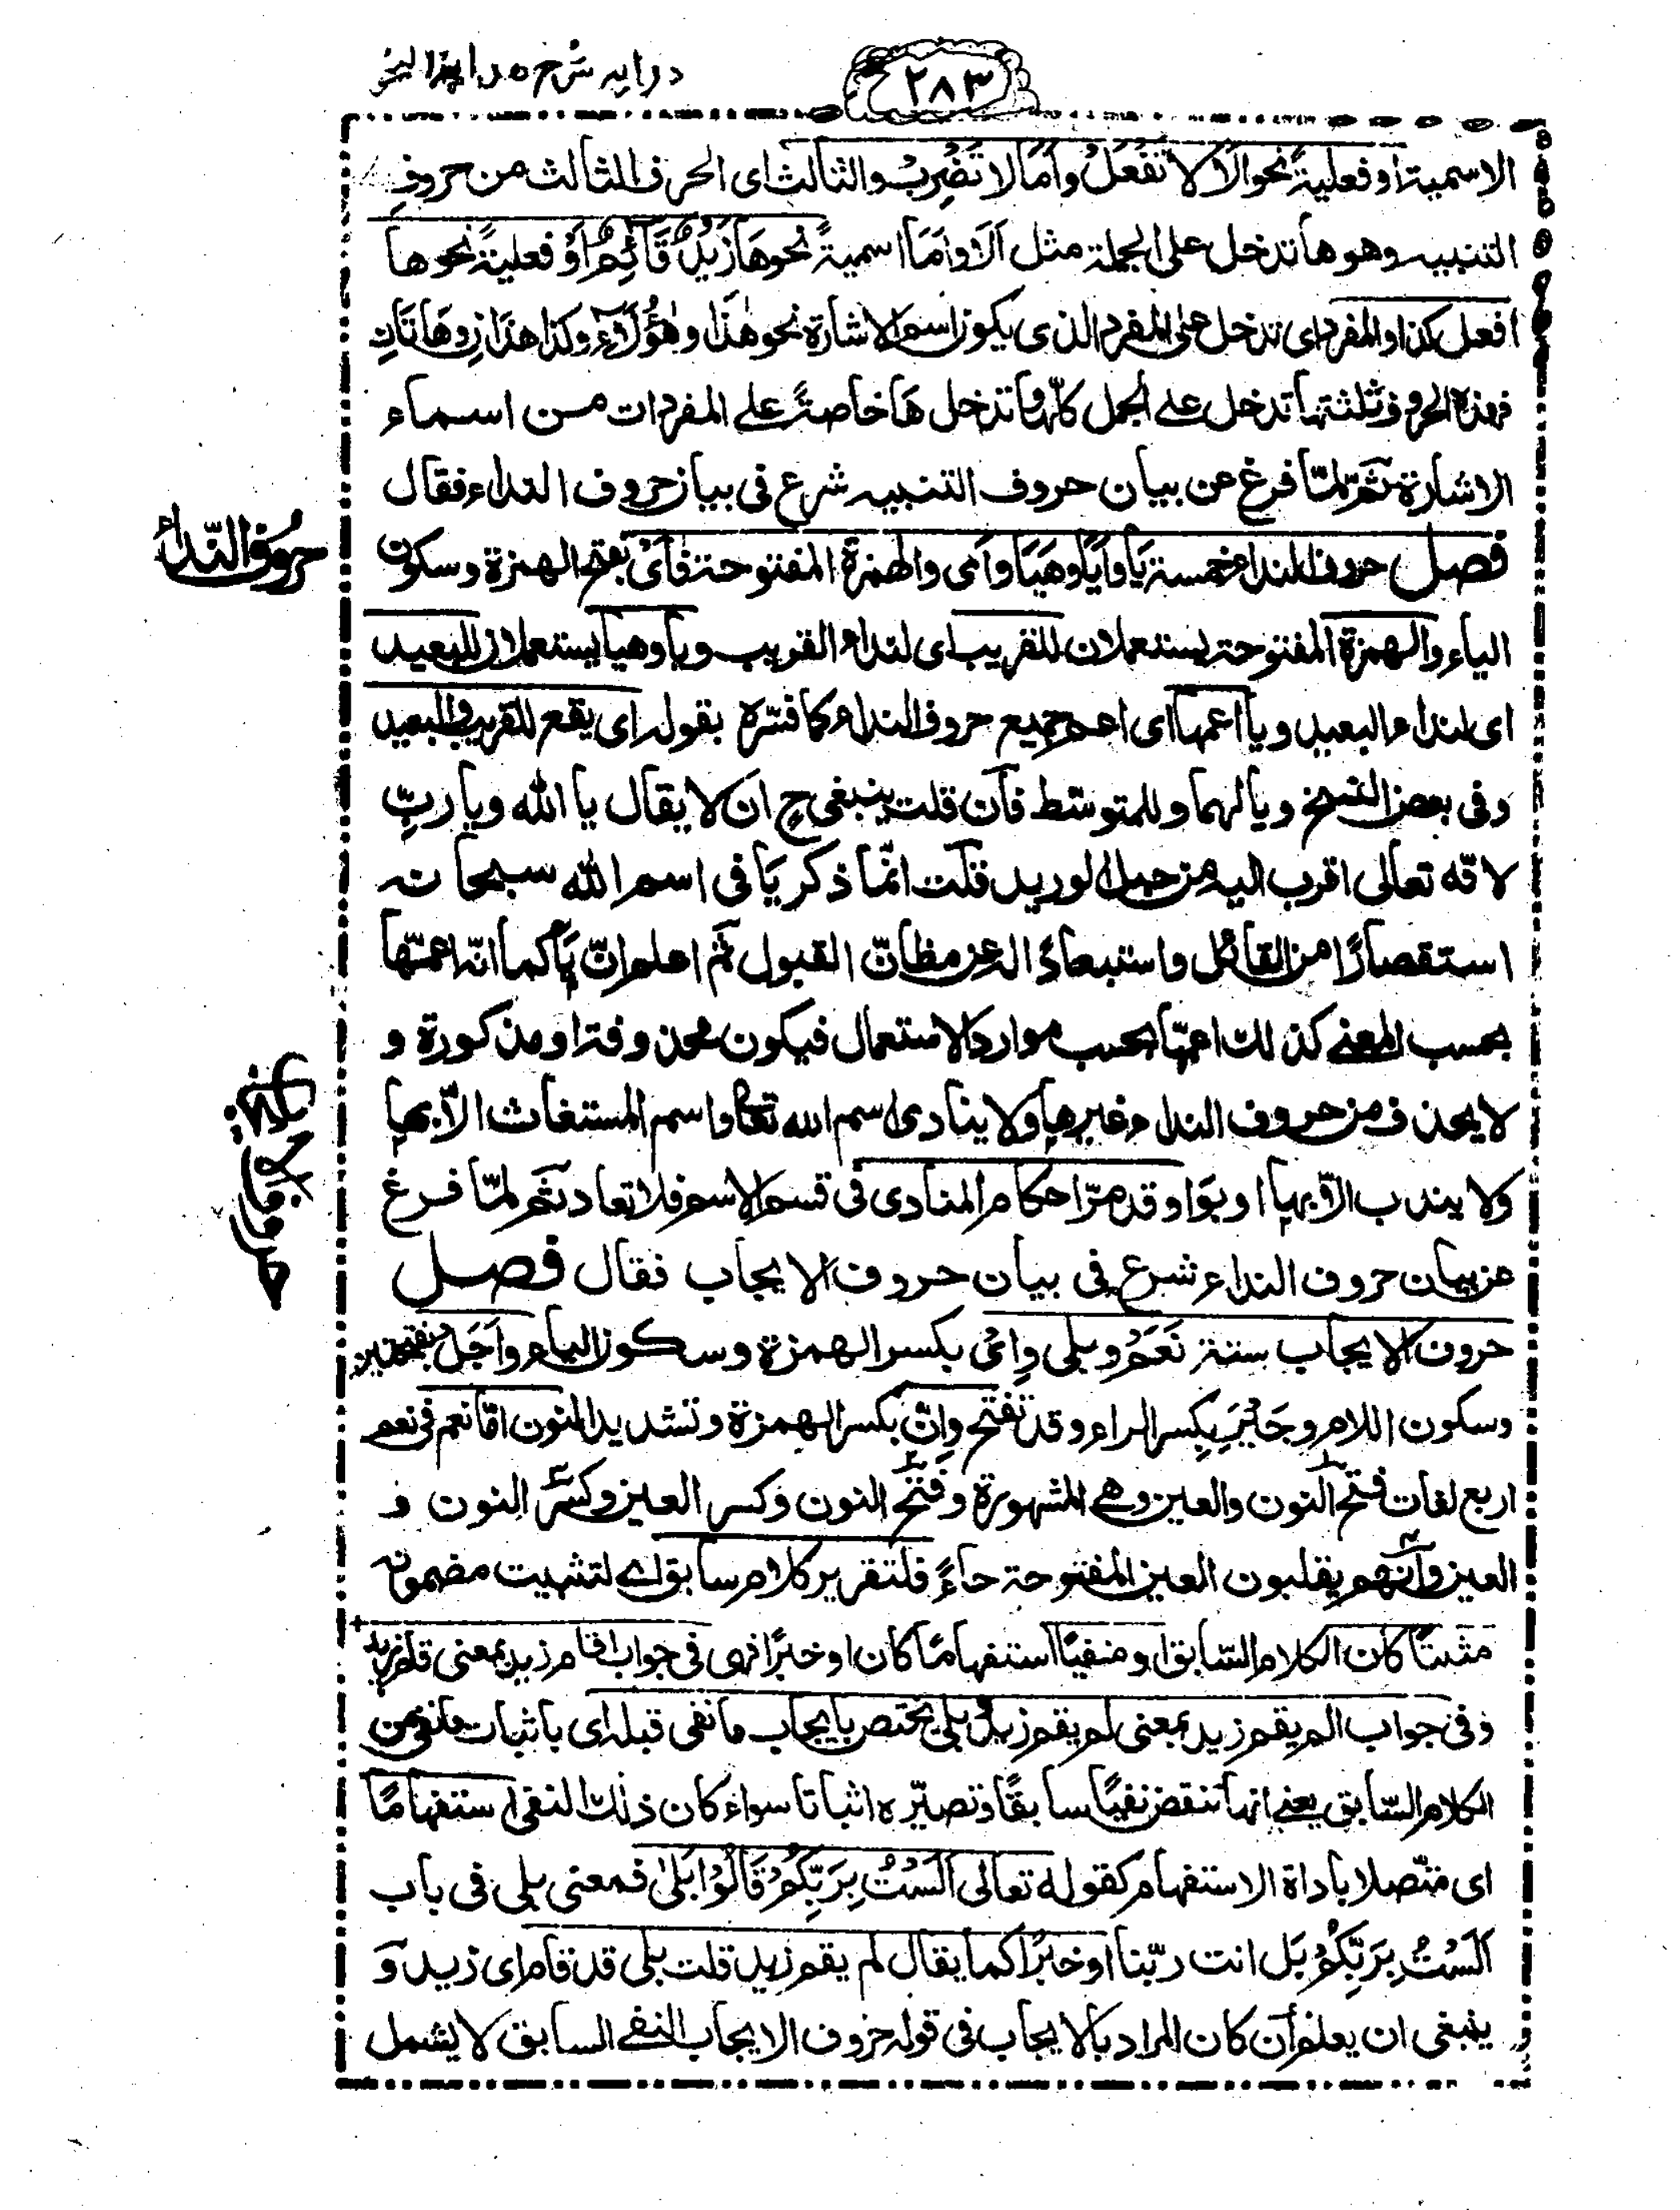 ٢٨٣
درايه شرح هداية النحو
الاسمية او فعلية نحو اَلَا لَا تَفْعَلْ واَمَا لا تَضْرِبْ والثالث اى الحرف الثالث من حروف
التنبيه وهو ها تدخل على الجملة مثل اَلَا واَمَا اسمية نحو هَا زَيْدٌ قَائِمٌ اَوْ فعليةً نحو ها
افعل كذا والمفرد اى تدخل على المفرد الذى يكون اسم الاشارة نحو هٰذَا وهٰؤُلَاءِ وكذا هذانِ وهَاتَانِ
فهذه الحروف ثلثتها تدخل على الجمل كلّها وتدخل هَا خاصةً على المفردات من اسماء
الاشارة ثمّ لمّا فرغ عن بيان حروف التنبيه شرع فى بيان حروف النداء فقال
حروف النداء
فصل حروف النداء خمسة يَا واَيَا وهَيَا واَى والهمزة المفتوحة فاَىْ بفتح الهمزة وسكون
الياء والهمزة المفتوحة يستعملان للقريب اى لنداء القريب وايا وهيا يستعملان للبعيد
اى لنداء البعيد ويا اعمها اى اعم جميع حروف النداء كما فسّره بقوله اى يقع للقريب والبعيد
وفى بعض النسخ ويا لهما وللمتوسّط فاٰن قلت ينبغى ح ان لا يقال يا الله ويا ربِّ
لانّه تعالى اقرب اليه من حبل الوريد قلت انّما ذكر يَا فى اسم الله سبحانه
استقصارًا من القائل واستبعادًا له عن مظانّ القبول ثم اعلم انّ يَا كما انّه اعمّها
بحسب المعنى كذلك اعمّها بحسب موارد الاستعمال فيكون محذوفة او مذكورة و
لا يحذف من حروف النداء غيرها ولا ينادى اسم الله تعالى واسم المستغاث الّا بها
ولا يندب الّا بها او بوَا وقد مرّ احكام المنادى فى قسم الاسم فلا تعاد ثم لمّا فرغ
حروف الايجاب
عن بيان حروف النداء شرع فى بيان حروف الايجاب فقال فصل
حروف الايجاب ستة نَعَمْ وبلى واِىْ بكسر الهمزة وسكون الياء واَجَلْ بفتحتين
وسكون اللام وجَيْرِ بكسر الراء وقد تفتح واِنّ بكسر الهمزة وتشديد النون امّا نعم فى نعم
اربع لغات فتح النون والعين وهى المشهورة وفتح النون وكسر العين وكسر النون و
العين وانهم يقلبون العين المفتوحة حاءً فلتقرير كلام سابق اى لتثبيت مضمونه
مثبتًا كان الكلام السّابق او منفيًا استفهامًا كان او خبرًا فهى فى جواب اقام زيد بمعنى قام زيد
وفى جواب الم يقم زيد بمعنى لم يقم زيد وبلى يختص بايجاب ما نفى قبله اى باثبات ما نفى من
الكلام السّابق يعنى انها تنقض نفيًا سابقًا وتصيّره اثباتا سواء كان ذلك النفى استفهامًا
اى متّصلا باداة الاستفهام كقوله تعالى اَلَسْتُ بِرَبِّكُمْ قَالُوْا بَلٰى فمعنى بلى فى باب
اَلَسْتُ بِرَبِّكُمْ بَل انت ربّنا او خبرًا كما يقال لم يقم زيد قلت بلى قد قام اى زيد و
ينبغى ان يعلم ان كان المراد بالايجاب فى قوله حروف الايجاب النفى السابق لا يشمل